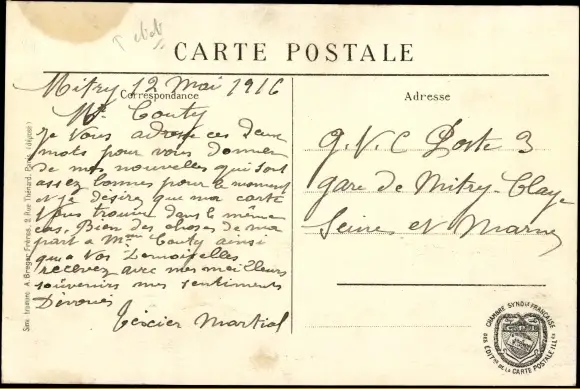 CARTE POSTALE
Mitry 12 Mai 1916
Correspondance
Mr Couty
Je vous adresse ces deux
mots pour vous donner
de mes nouvelles qui sont
assez bonnes pour le moment
et je désire que ma carte
vous trouve dans le même
cas. Bien des choses de ma
part a Mme Couty ainsi
que a vos Demoiselles
recevez avec mes meilleurs
souvenirs mes sentiments
Dévoués
Texier Martial
Adresse
G.V.C Poste 3
gare de Mitry-Claye
Seine et Marne
Frères, 2 Rue Thénard, Paris. (déposé)
CHAMBRE SYNDLE FRANÇAISE
DES EDITRS DE LA CARTE POSTALE ILLÉE